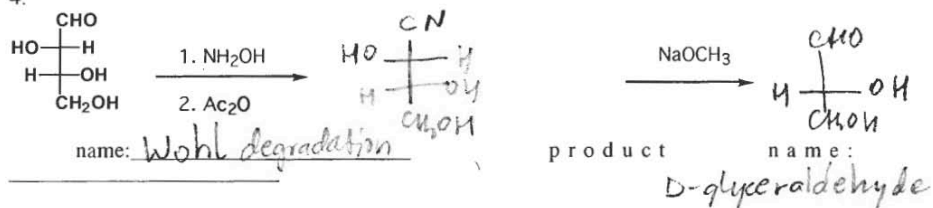 4.
CHO
HO H
H OH
CH₂OH
1. NH₂OH
2. Ac₂O
CN
HO H
H OH
CH₂OH
NaOCH₃
CHO
H OH
CH₂OH
name: Wohl degradation
product name:
D-glyceraldehyde